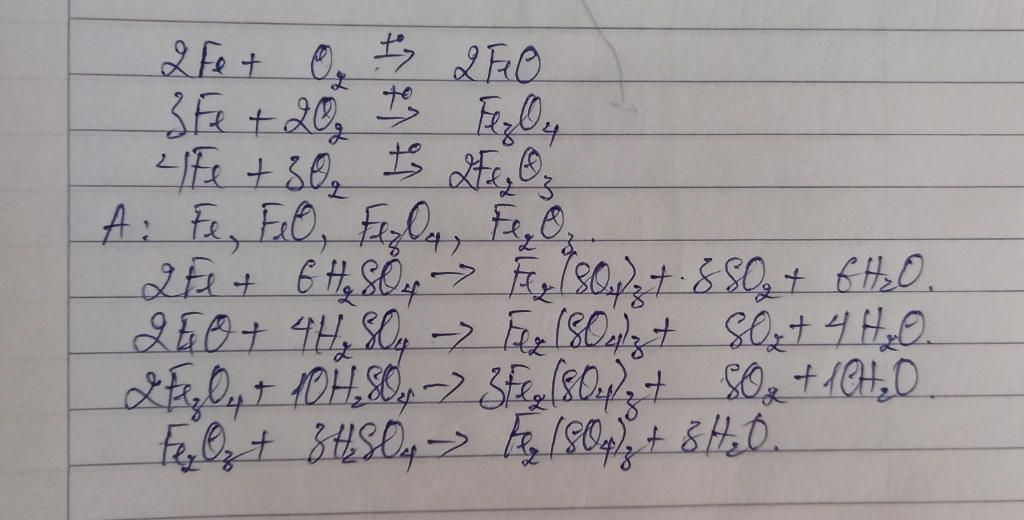 2Fe + O₂ →(t°) 2FeO
3Fe + 2O₂ →(t°) Fe₃O₄
4Fe + 3O₂ →(t°) 2Fe₂O₃
A: Fe, FeO, Fe₃O₄, Fe₂O₃.
2Fe + 6H₂SO₄ → Fe₂(SO₄)₃ + 3SO₂ + 6H₂O.
2FeO + 4H₂SO₄ → Fe₂(SO₄)₃ + SO₂ + 4H₂O.
2Fe₃O₄ + 10H₂SO₄ → 3Fe₂(SO₄)₃ + SO₂ + 10H₂O.
Fe₂O₃ + 3H₂SO₄ → Fe₂(SO₄)₃ + 3H₂O.